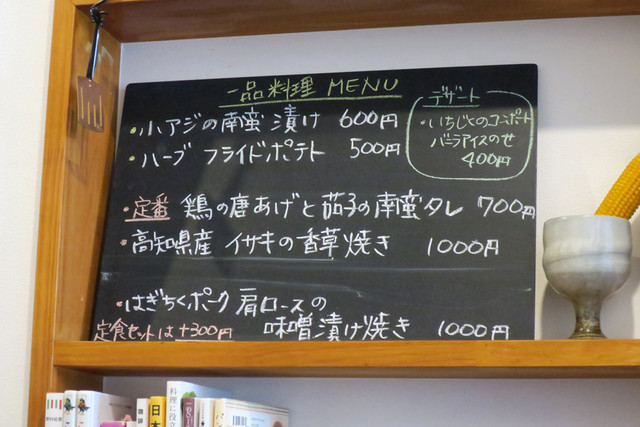 一品料理 MENU
・小アジの南蛮漬け 600円
・ハーブ フライドポテト 500円
・定番 鶏の唐あげと茄子の南蛮タレ 700円
・高知県産 イサキの香草焼き 1000円
・はぎちくポーク 肩ロースの
味噌漬け焼き 1000円
定食セットは +300円
デザート
・いちじくのコンポート
バニラアイスのせ
400円
日本
料理に役立